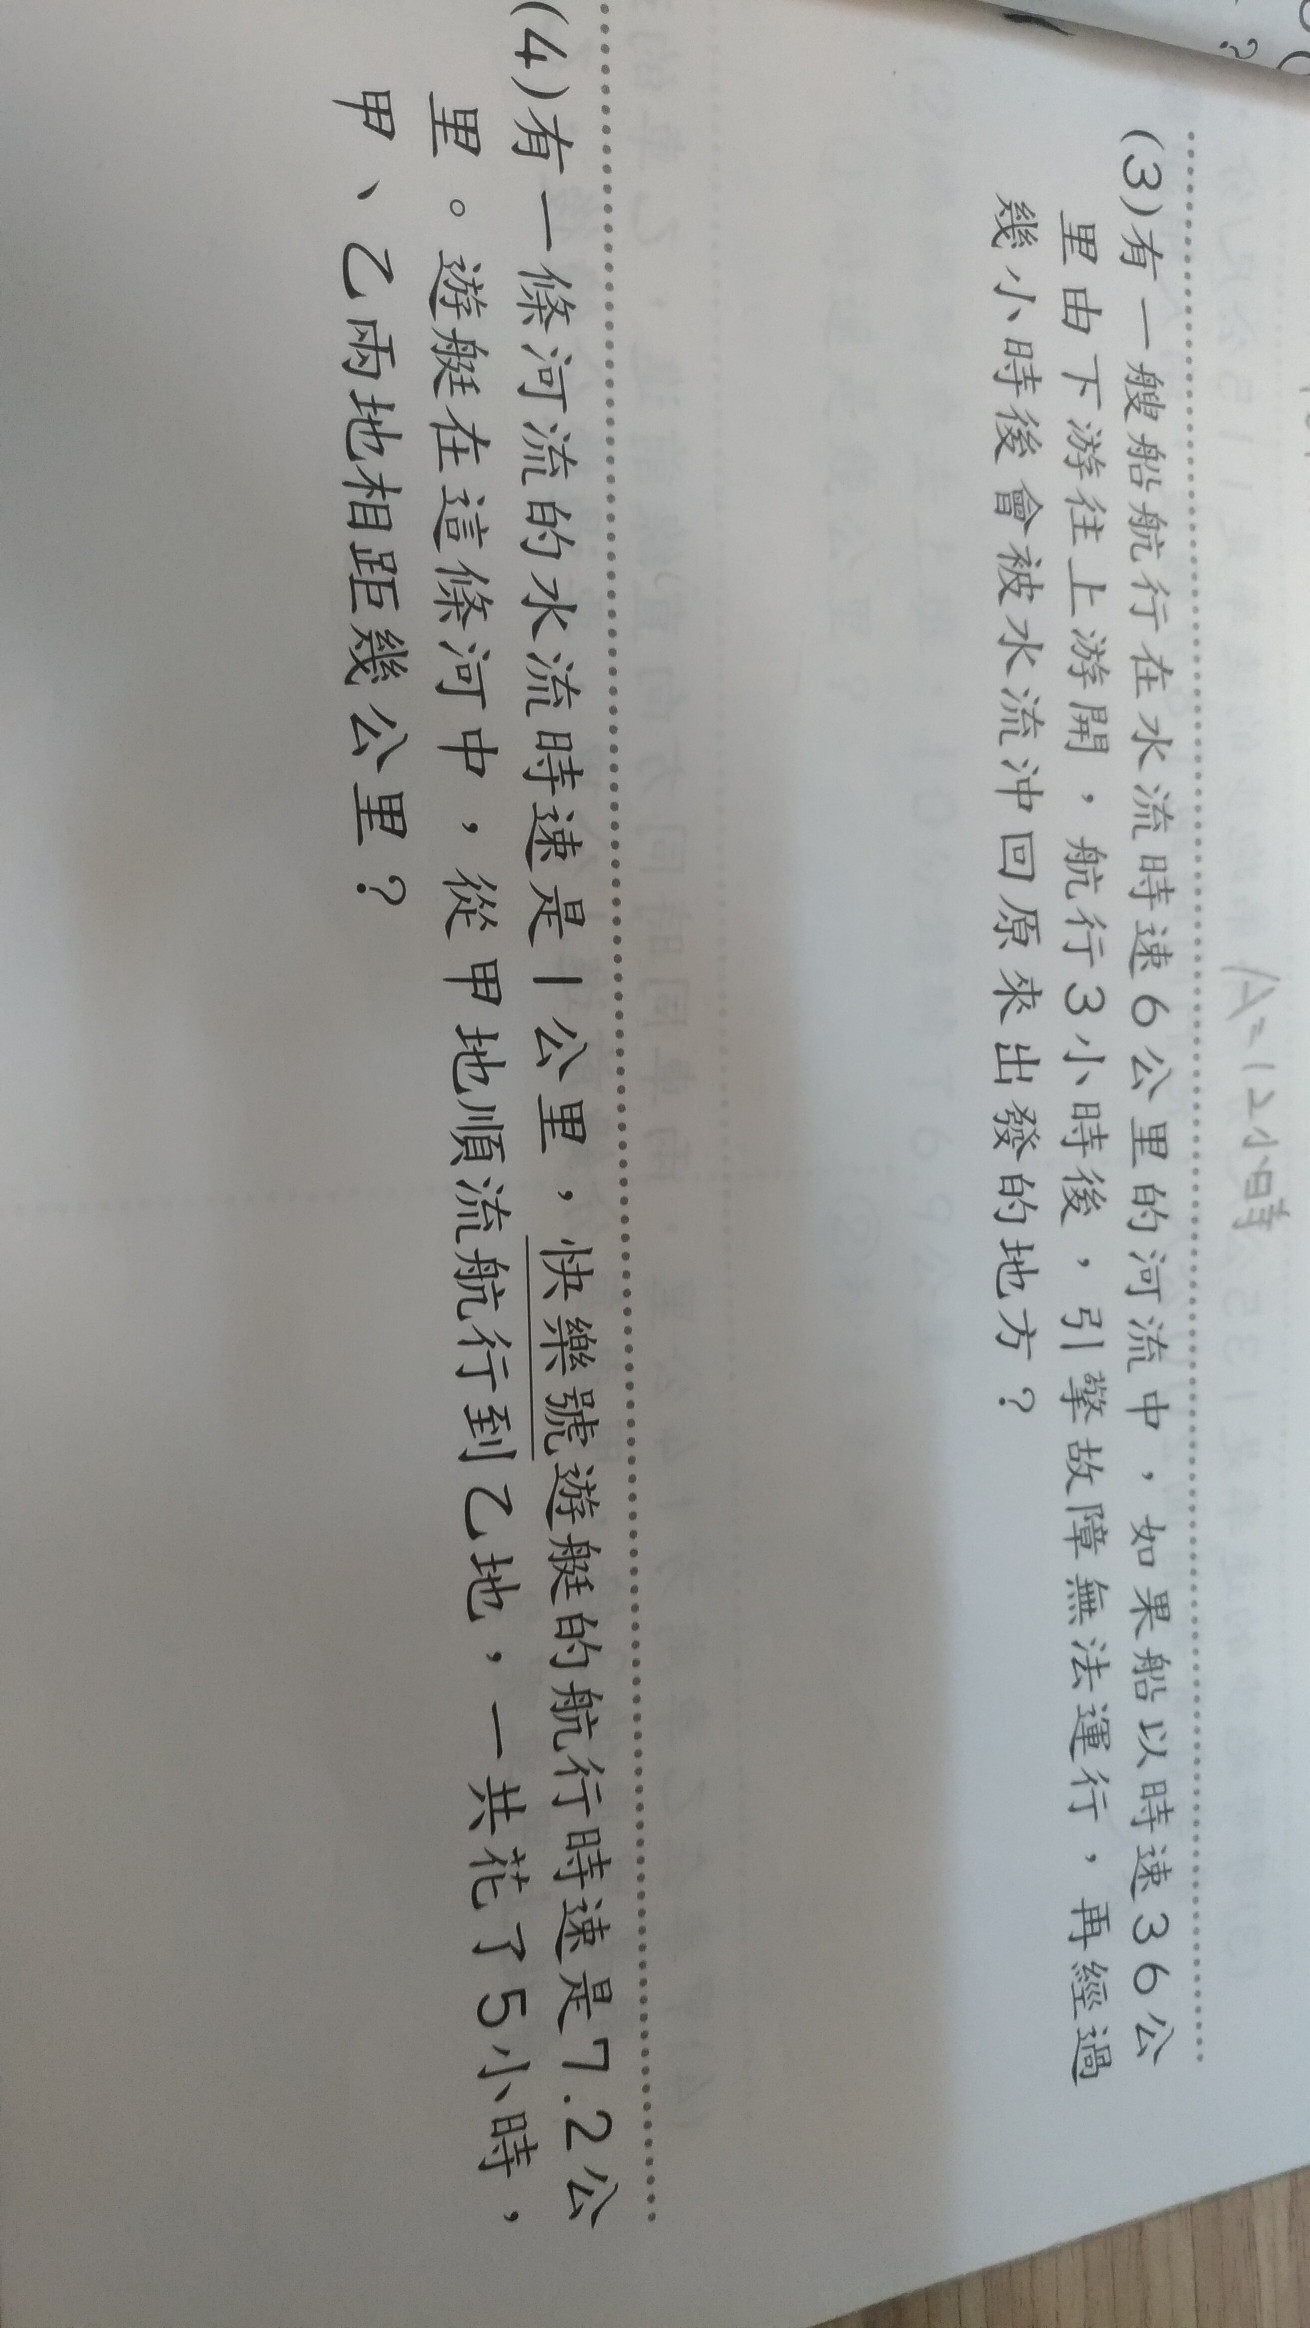 A=12小時
(3)有一艘船航行在水流時速6公里的河流中，如果船以時速36公
里由下游往上游開，航行3小時後，引擎故障無法運行，再經過
幾小時後會被水流沖回原來出發的地方？
(4)有一條河流的水流時速是1公里，快樂號遊艇的航行時速是7.2公
里。遊艇在這條河中，從甲地順流航行到乙地，一共花了5小時，
甲、乙兩地相距幾公里？